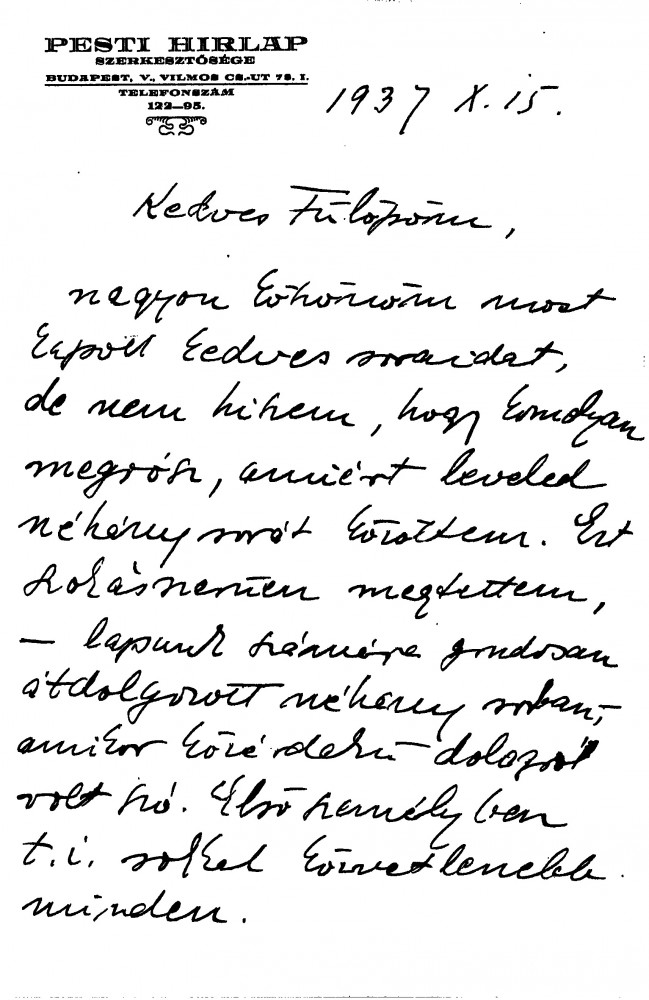 PESTI HIRLAP
SZERKESZTŐSÉGE
BUDAPEST, V., VILMOS CS.-UT 78. I.
TELEFONSZÁM
122—95.
1937 X. 15.
Kedves Fülöpöm,
nagyon köszönöm most
kapott kedves soraidat,
de nem hiszem, hogy komolyan
megrósz, amiért leveled
néhány sorát közöltem. Ezt
szokásszerűen megtettem,
— lapunk számára gondosan
átdolgozott néhány sorban,
amikor közérdekű dologról
volt szó. Első személyben
t.i. sokkal közvetlenebb
minden.